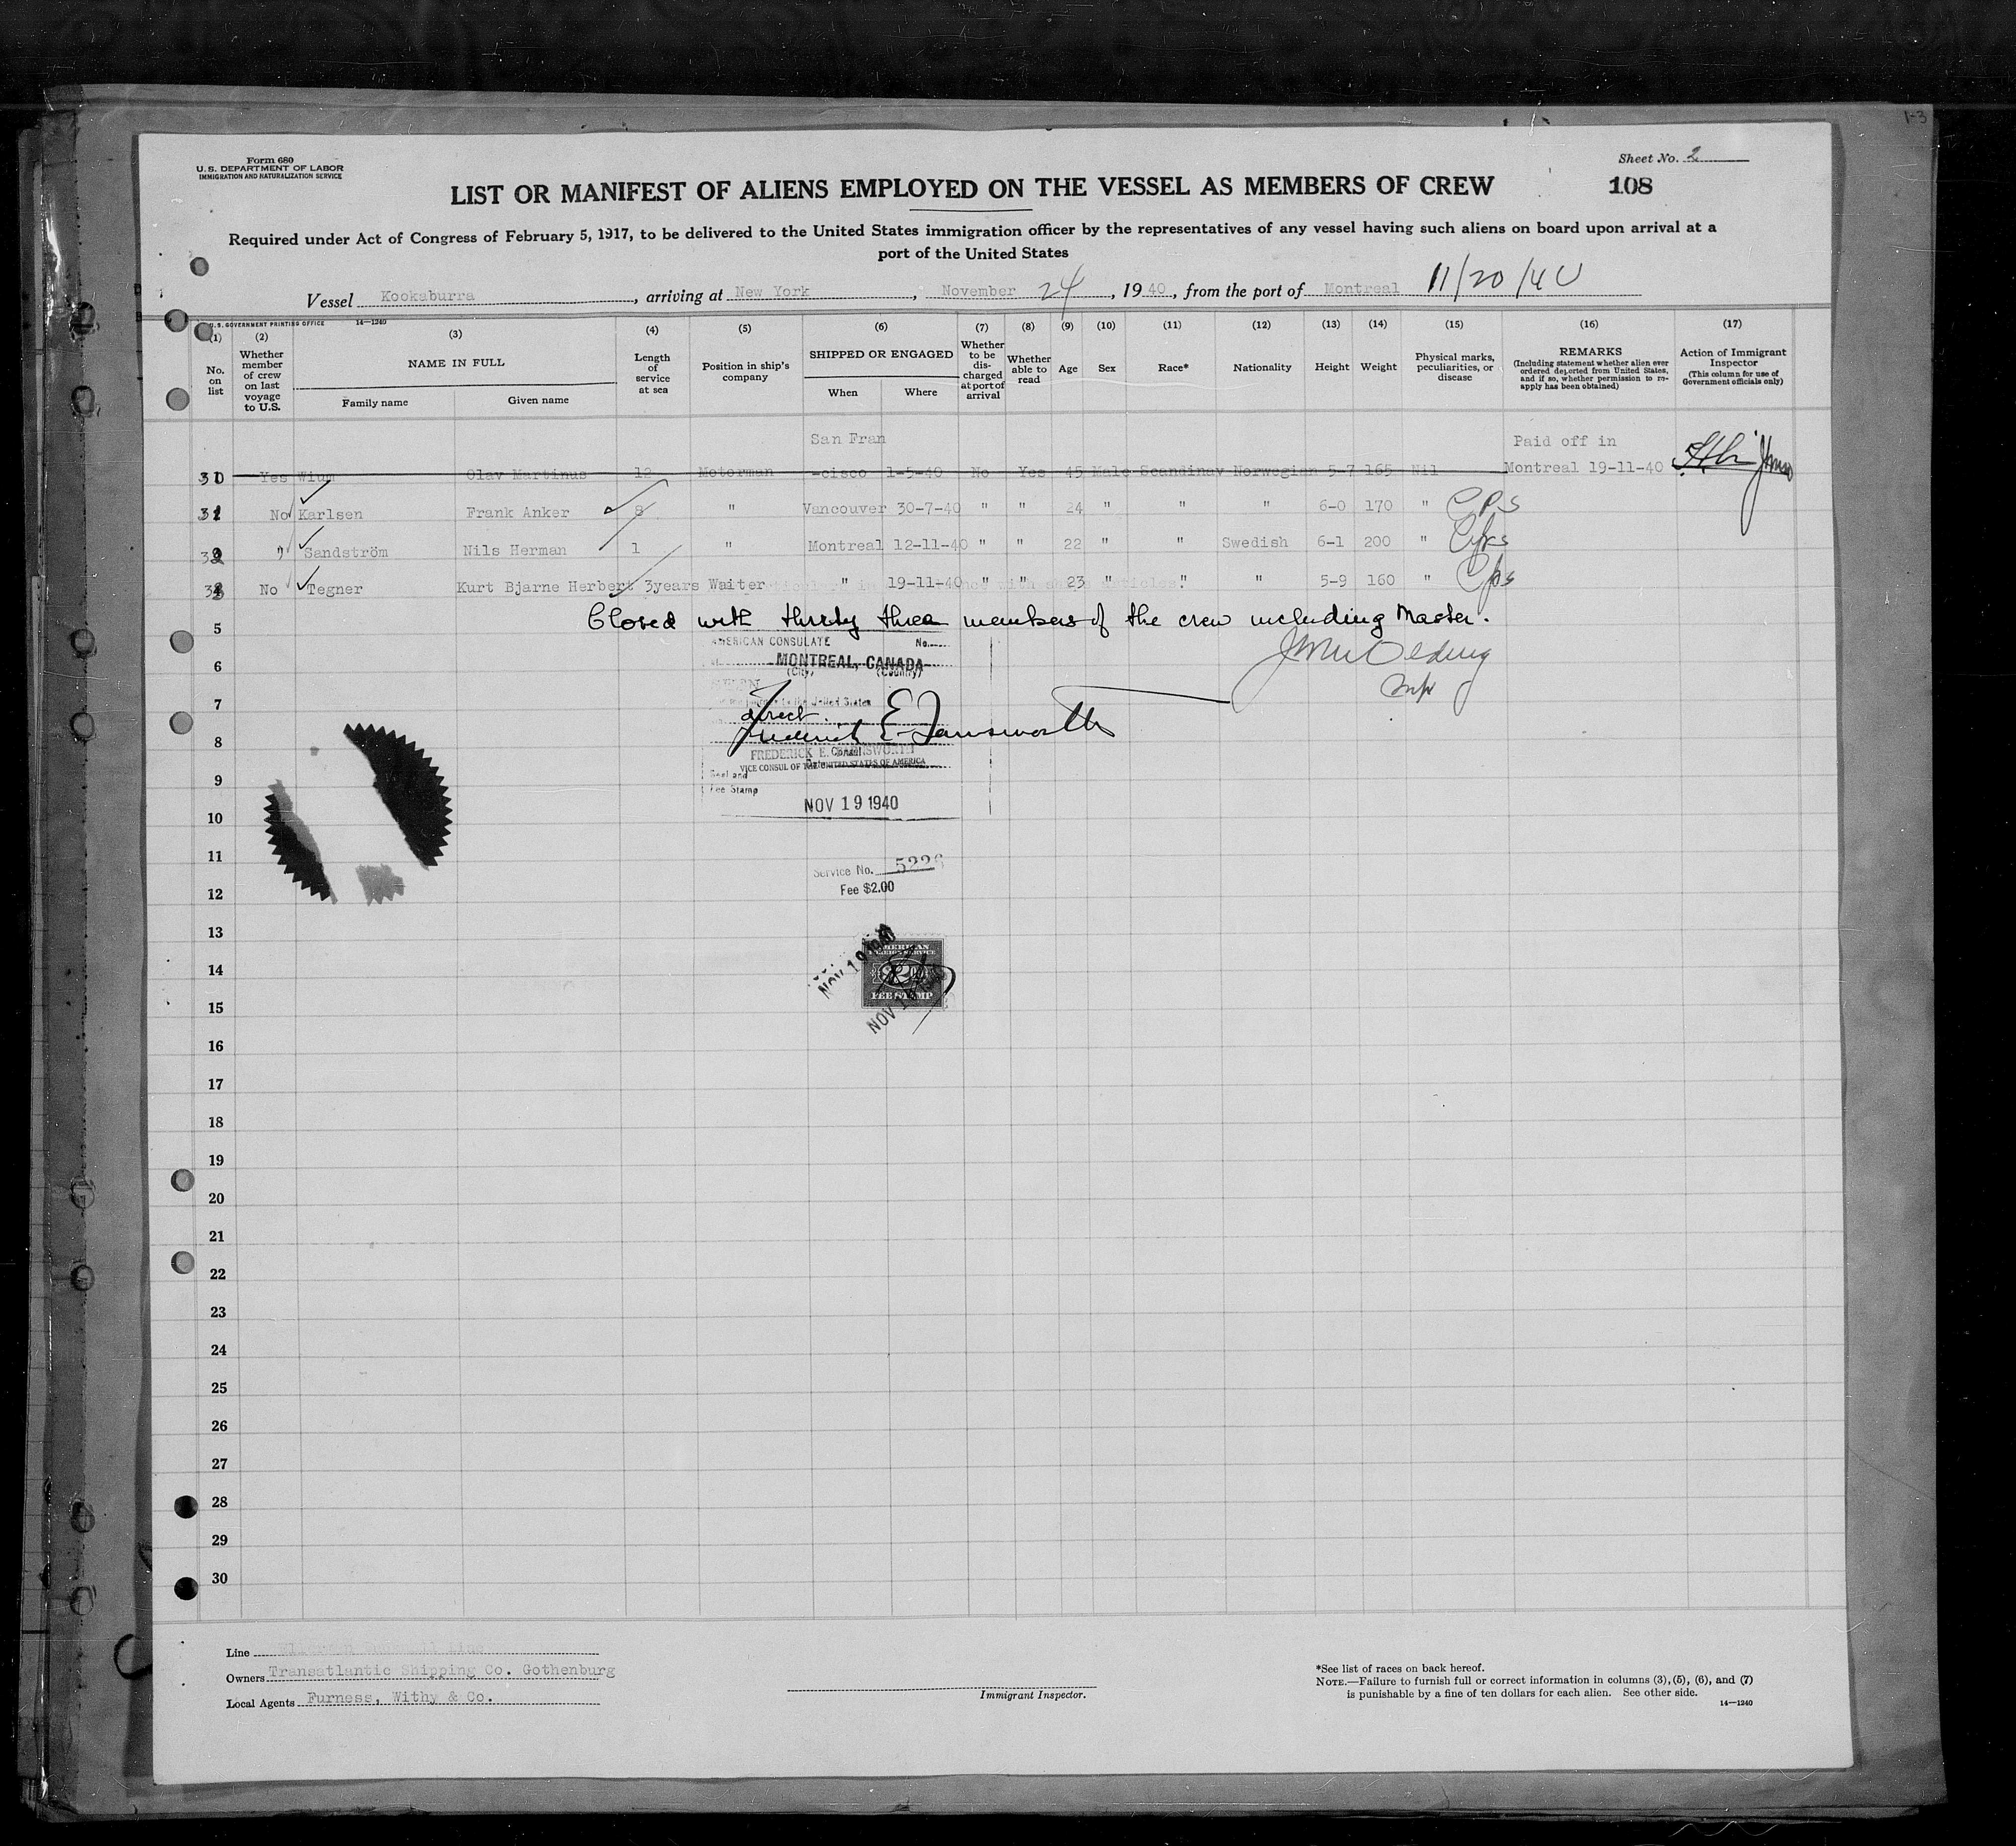 1-3
Form 680
U. S. DEPARTMENT OF LABOR
IMMIGRATION AND NATURALIZATION SERVICE
Sheet No. 2
LIST OR MANIFEST OF ALIENS EMPLOYED ON THE VESSEL AS MEMBERS OF CREW
108
Required under Act of Congress of February 5, 1917, to be delivered to the United States immigration officer by the representatives of any vessel having such aliens on board upon arrival at a
port of the United States
Vessel Kookaburra, arriving at New York, November 24, 1940, from the port of Montreal 11/20/40
U. S. GOVERNMENT PRINTING OFFICE 14—1240
(1) No. on list
(2) Whether member of crew on last voyage to U.S.
(3) NAME IN FULL
Family name Given name
(4) Length of service at sea
(5) Position in ship's company
(6) SHIPPED OR ENGAGED
When Where
(7) Whether to be discharged at port of arrival
(8) Whether able to read
(9) Age
(10) Sex
(11) Race*
(12) Nationality
(13) Height
(14) Weight
(15) Physical marks, peculiarities, or disease
(16) REMARKS
(Including statement whether alien ever ordered deported from United States, and if so, whether permission to reapply has been obtained)
(17) Action of Immigrant Inspector
(This column for use of Government officials only)
San Fran Paid off in
30 Yes Wium Olav Martinus 12 Motorman -cisco 1-5-40 No Yes 45 Male Scandinav Norwegian 5-7 165 Nil Montreal 19-11-40
31 No Karlsen Frank Anker 8 " Vancouver 30-7-40 " " 24 " " " 6-0 170 " CPS
32 " Sandström Nils Herman 1 " Montreal 12-11-40 " " 22 " " Swedish 6-1 200 " Cps
33 No Tegner Kurt Bjarne Herbert 3years Waiter " 19-11-40 " " 23 " " " 5-9 160 " Cps
Closed with thirty three members of the crew including Master.
5
AMERICAN CONSULATE No.
6
MONTREAL, CANADA
(City) (Country)
SEEN
7
For the journey to the United States
direct.
Frederick E. Farnsworth
8
FREDERICK E. FARNSWORTH
Consul
VICE CONSUL OF THE UNITED STATES OF AMERICA
9
Seal and
Fee Stamp
NOV 19 1940
10
11
Service No. 5226
12
Fee $2.00
13
NOV 19 1940
AMERICAN
FOREIGN SERVICE
14
FEE STAMP
NOV 19 1940
15
16
17
18
19
20
21
22
23
24
25
26
27
28
29
30
Line
Owners Transatlantic Shipping Co. Gothenburg
Local Agents Furness, Withy & Co.
Immigrant Inspector.
*See list of races on back hereof.
NOTE.—Failure to furnish full or correct information in columns (3), (5), (6), and (7)
is punishable by a fine of ten dollars for each alien. See other side.
14—1240